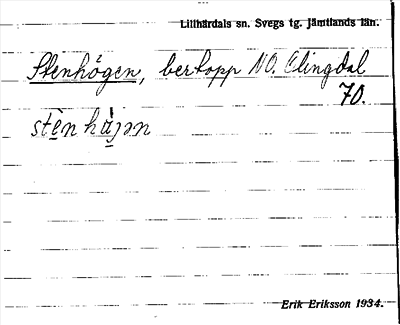 Lillhärdals sn. Svegs tg. Jämtlands län.
Stenhögen, bertopp NO. Elingdal
70.
stèn hàjən
Erik Eriksson 1934.